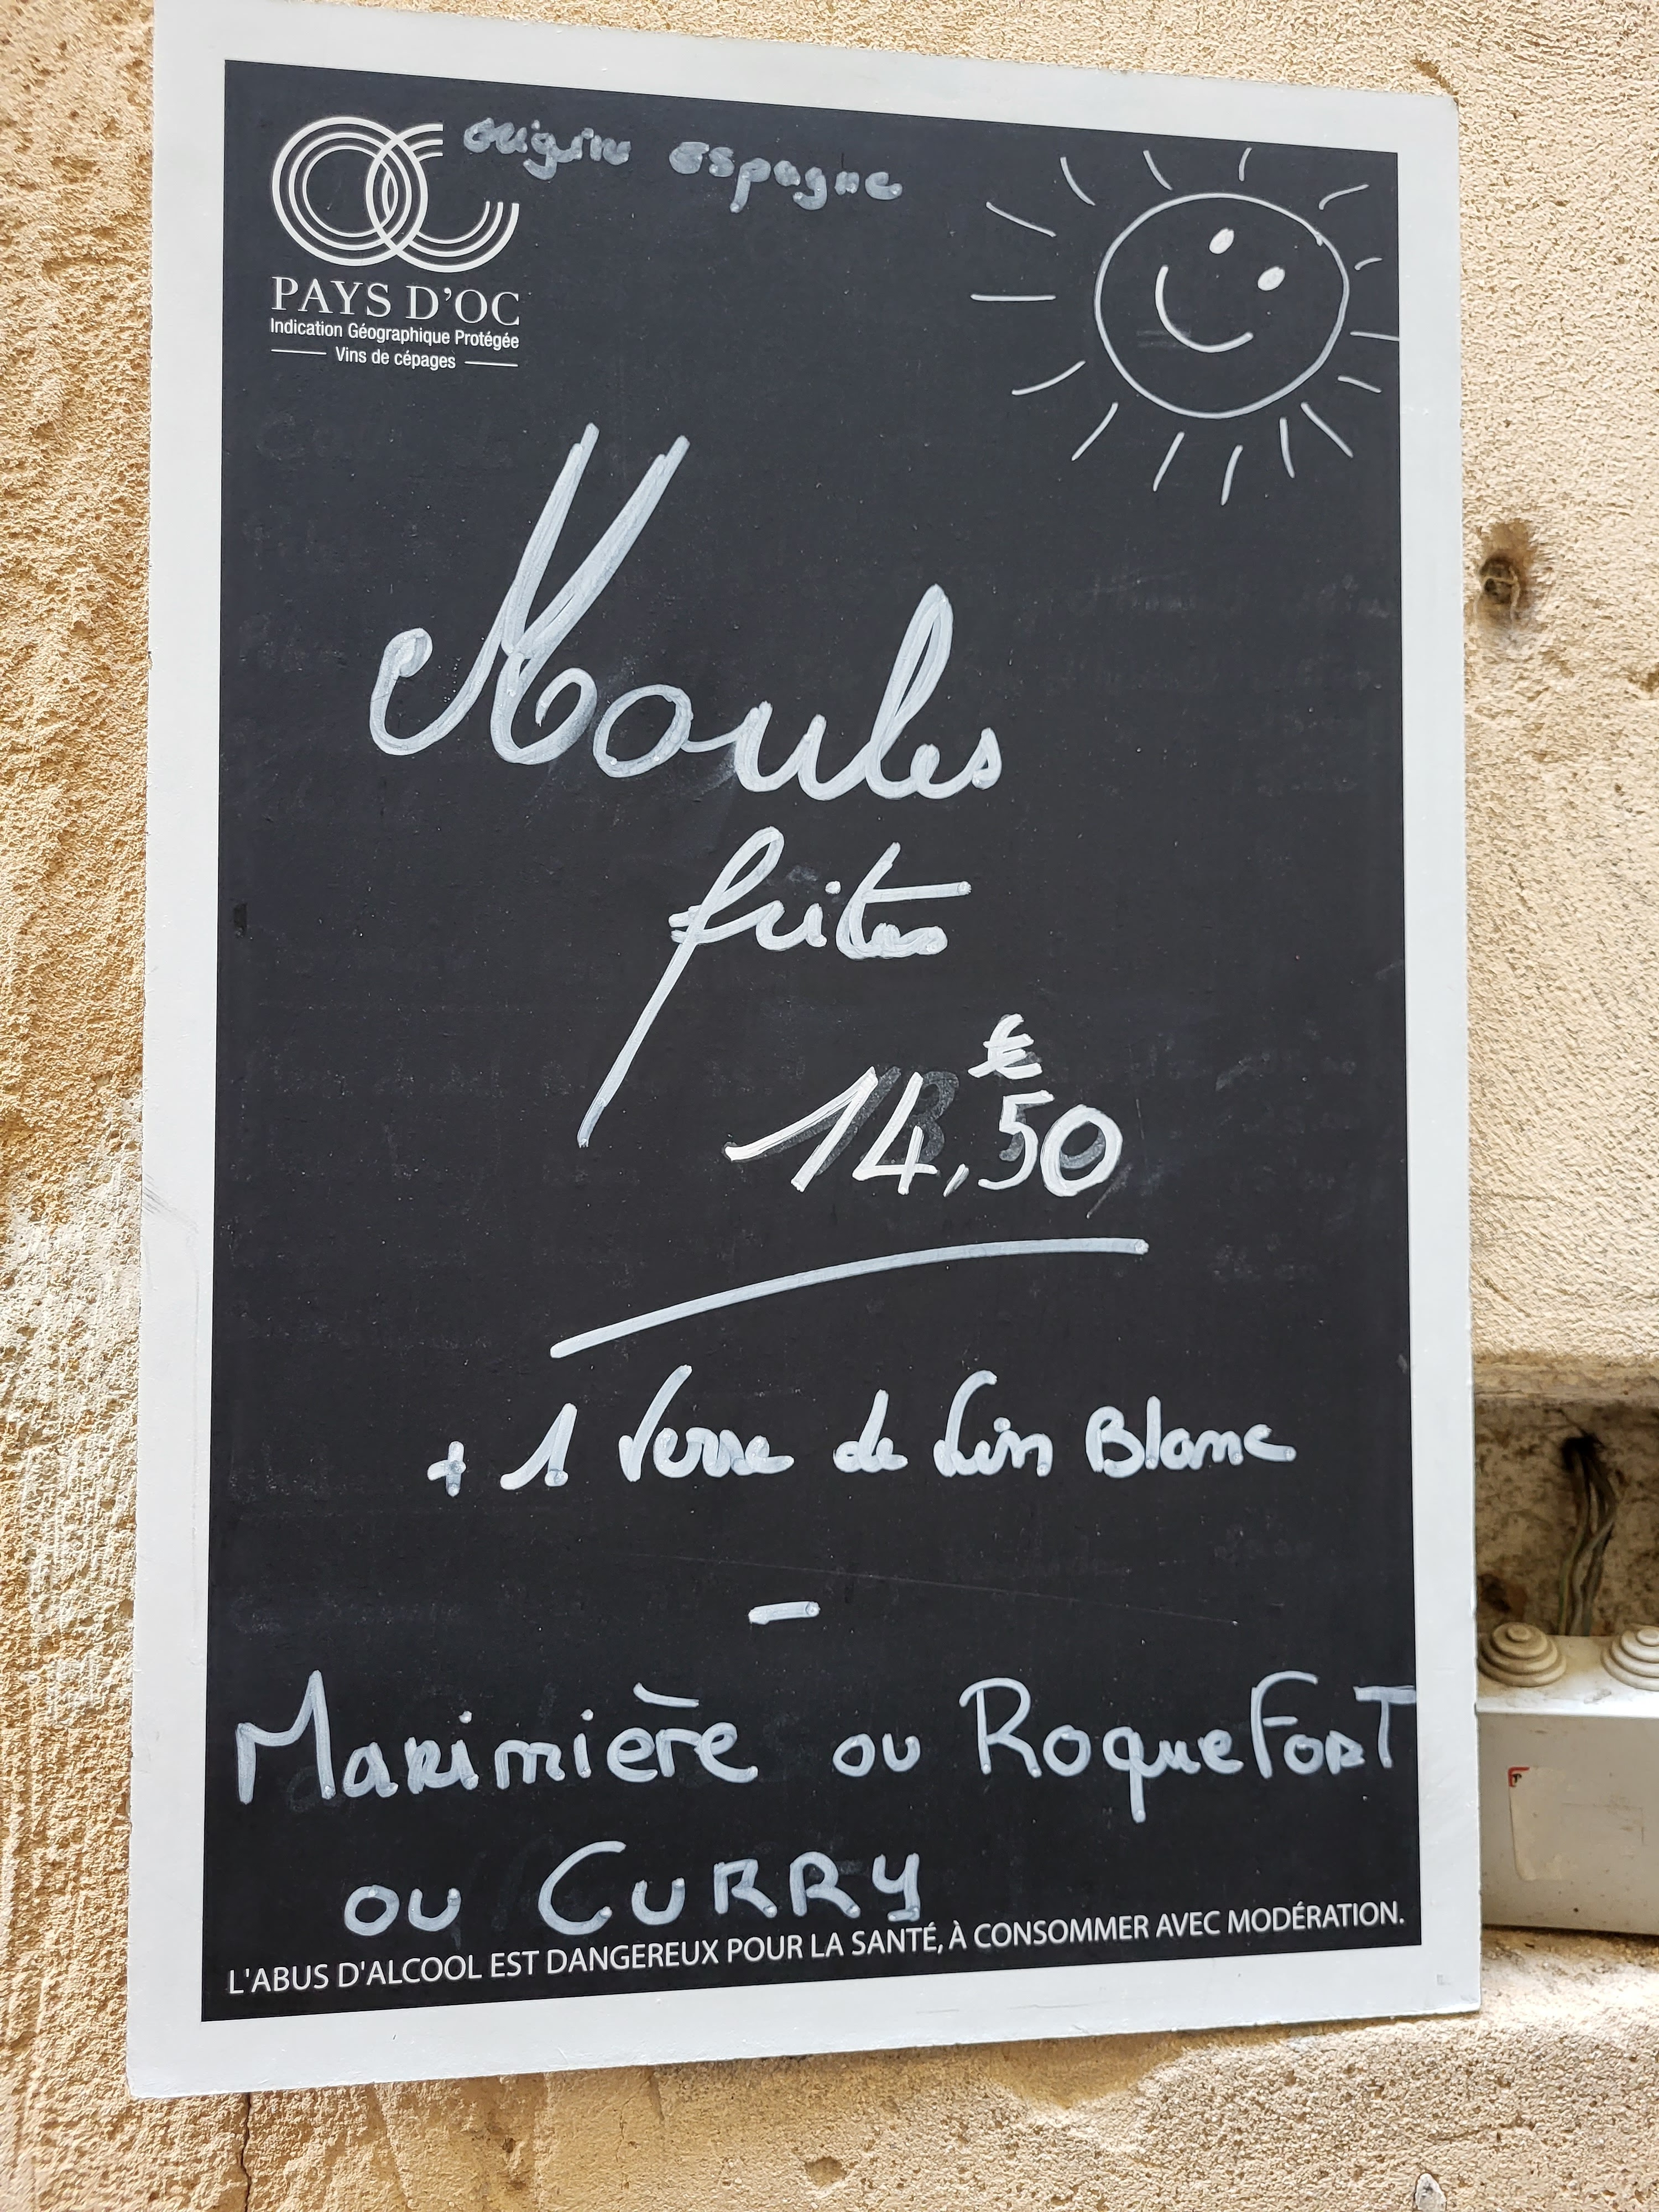 OC origine espagne
PAYS D'OC
Indication Géographique Protégée
Vins de cépages
Moules
frites
€
14,50
+ 1 Verre de Vin Blanc
-
Marinière ou RoqueForT
ou CuRRy
L'ABUS D'ALCOOL EST DANGEREUX POUR LA SANTÉ, À CONSOMMER AVEC MODÉRATION.